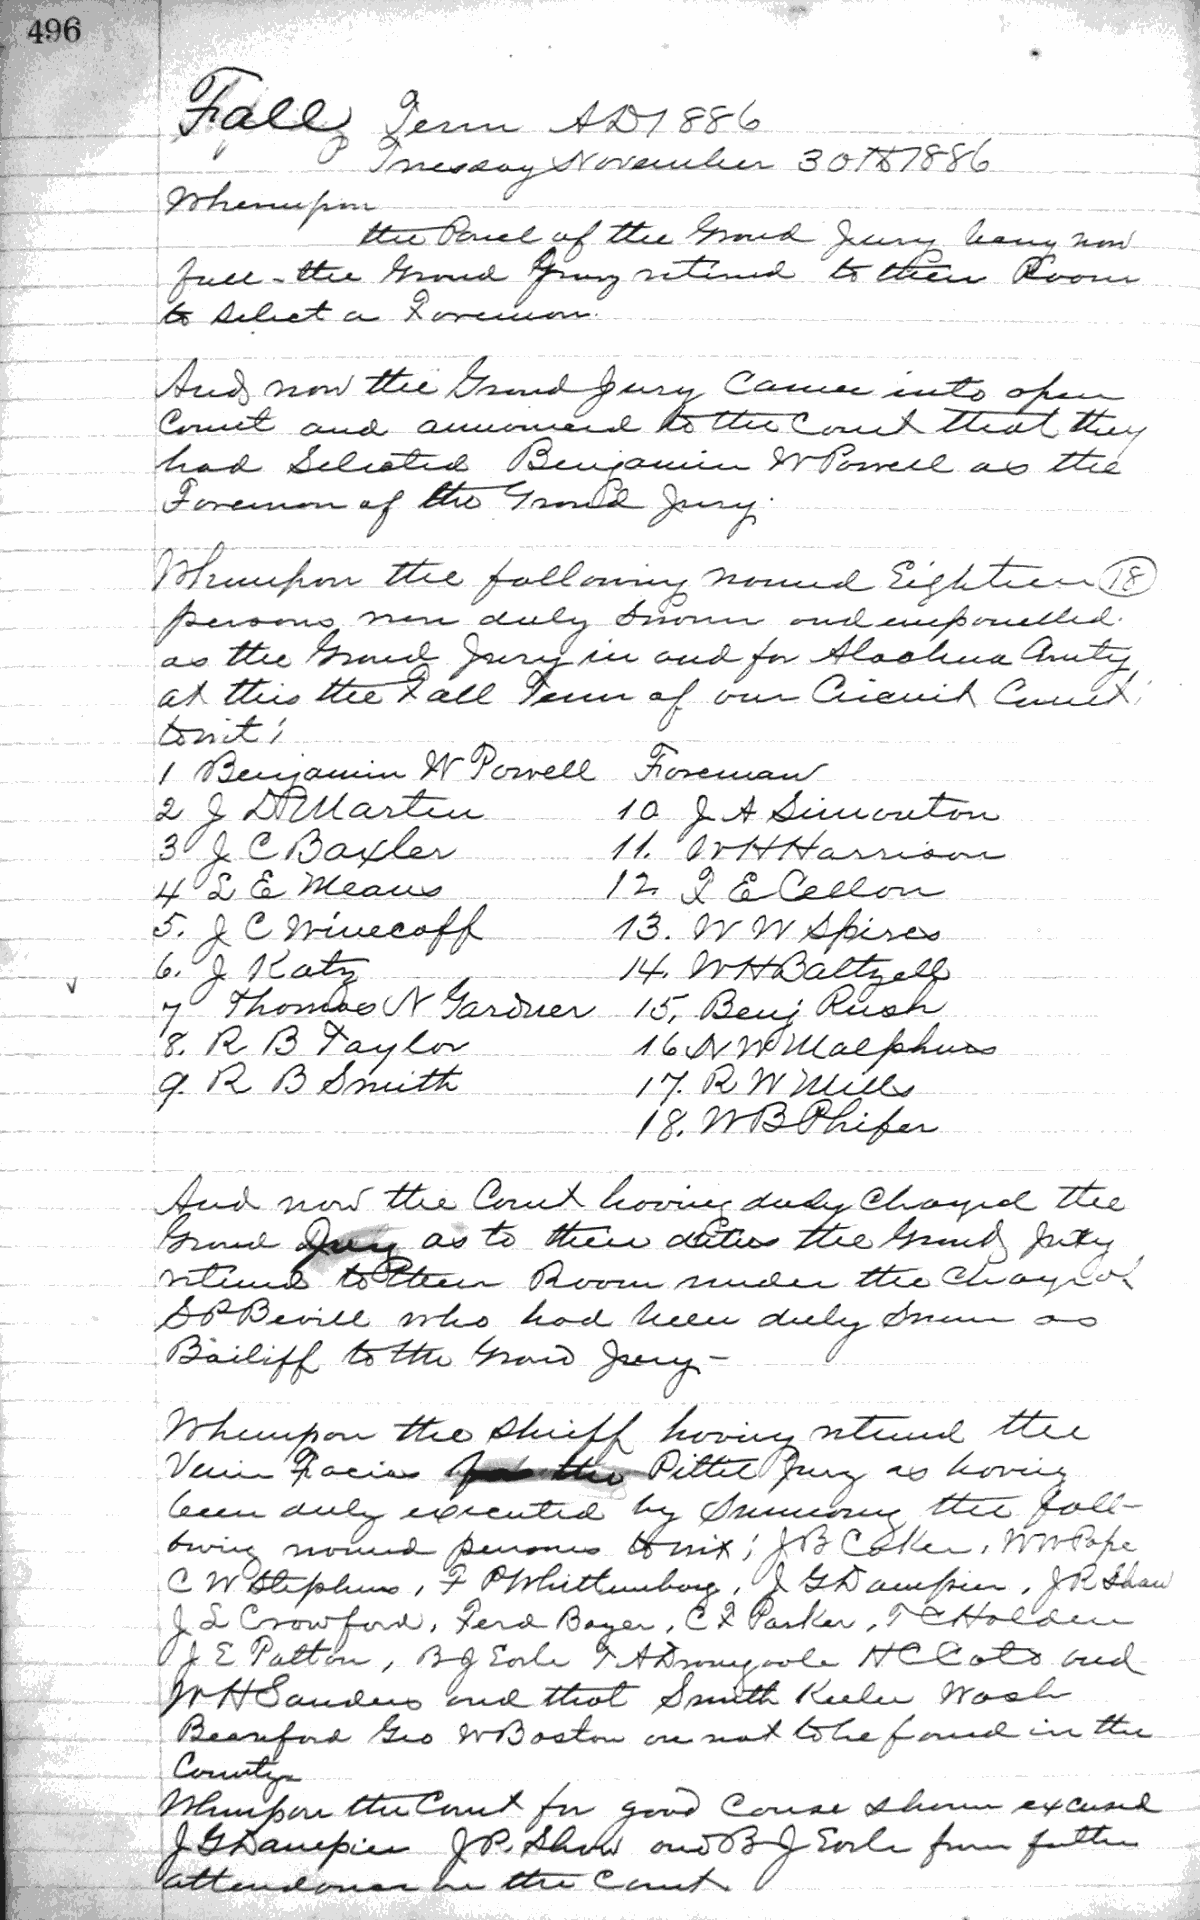 496
Fall Term AD 1886
Tuesday November 30th 1886
Whereupon
the Panel of the Grand Jury being now
full - the Grand Jury retired to their Room
to select a Foreman.
And now the Grand Jury Came into open
Court and announced to the Court that they
had Selected Benjamin W Powell as the
Foreman of the Grand Jury.
Whereupon the following named Eighteen (18)
persons were duly Sworn and empanelled.
as the Grand Jury in and for Alachua County
at this the Fall Term of our Circuit Court;
towit;
1 Benjamin W Powell Foreman
2 J D Martin 10 J A Simonton
3 J C Baxler 11. W H Harrison
4 L E Means 12 F E Cellon
5. J C Winecoff 13. W W Spires
6. J Katz 14. W H Baltzell
7 Thomas N Gardner 15. Benj Rush
8. R B Taylor 16 N W Malphurs
9. R B Smith 17. R W Mills
18. W B Phifer
And now the Court having duly Charged the
Grand Jury as to their duties the Grand Jury
retired to their Room under the Charge of
S P Bevill who had been duly Sworn as
Bailiff to the Grand Jury -
Whereupon the Sheriff having returned the
Veniri Facias for the Pittit Jury as having
been duly executed by Summong the foll-
owing named persons to wit; J B Coker, W W Pope
C W Stephens, F P Whittemborg, J G Dampier, J R Shaw
J L Crowford, Ferd Bayer, C F Parker, T C Holden
J E Patton, B J Earle T A Dromgoole H C Cato and
W H Sanders and that Smith Keeler Wash
Bearsford Geo W Boston are not to be found in the
County
Whereupon the Court for good Cause shown excused
J G Dampier J R. Shaw and B J Earle from futher
attendance on the Court.